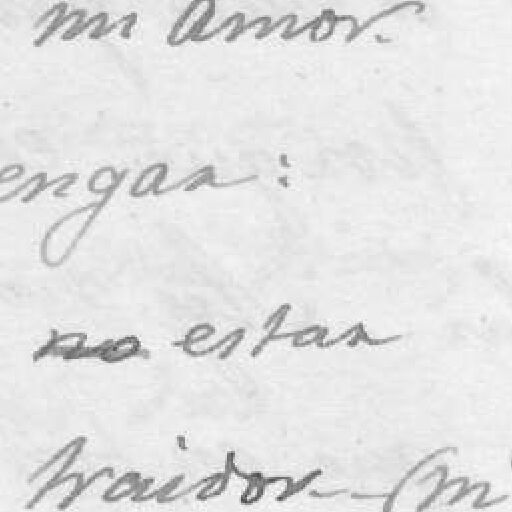 mi amor.
engas:
no estas
traidor-(m